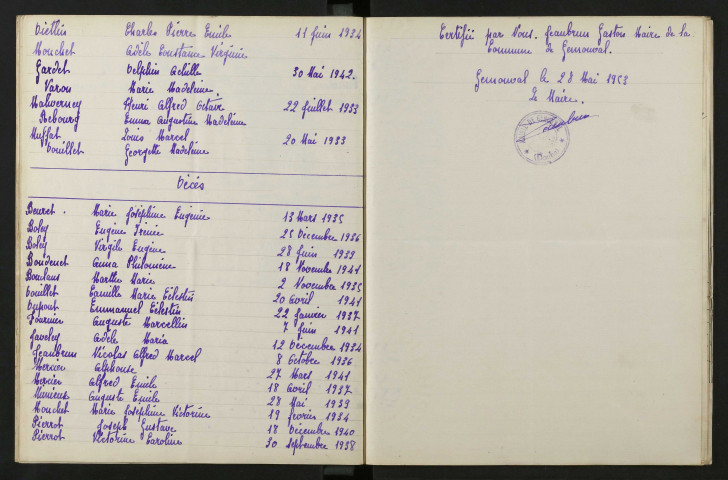 Diethlin Charles Pierre Emile 11 Juin 1934
Mouchet Adèle Constance Virginie
Gardet Delphin Achille 30 Mai 1942.
Varon Marie Madeleine.
Malverney Henri Alfred Octave 22 Juillet 1933
Rebourg Emma Augustine Madeleine
Muffat Louis Marcel 20 Mai 1933
Douillet Georgette Madeleine
Décès
Beuret. Marie Joséphine Eugénie 13 Mars 1935
Boley Eugène Irénée 25 Décembre 1936
Boley Virgile Eugène 28 Juin 1939
Boudenet Anna Philomène 18 Novembre 1941
Marthe Marie 2 Novembre 1935
Douillet Camille Marie Célestin 20 Avril 1941
Dupont Emmanuel Célestin 22 Janvier 1937
Fournier Auguste Marcellin 7 Juin 1941
Adèle Maria 12 Décembre 1934
Jeanbrun Nicolas Alfred Marcel 8 Octobre 1936
Mercier Alphonse 27 Mars 1941
Mercier Alfred Emile 18 Avril 1937
Auguste Emile 28 Mai 1939
Mouchet Marie Joséphine Victorine 19 février 1934
Pierrot Joseph Gustave 18 Décembre 1940
Pierrot Victorine Caroline 30 Septembre 1938
Certifié par Nous. Jeanbrun Gaston Maire de la
Commune de Gémonval.
Gémonval le 28 Mai 1953
Le Maire.
Jeanbrun